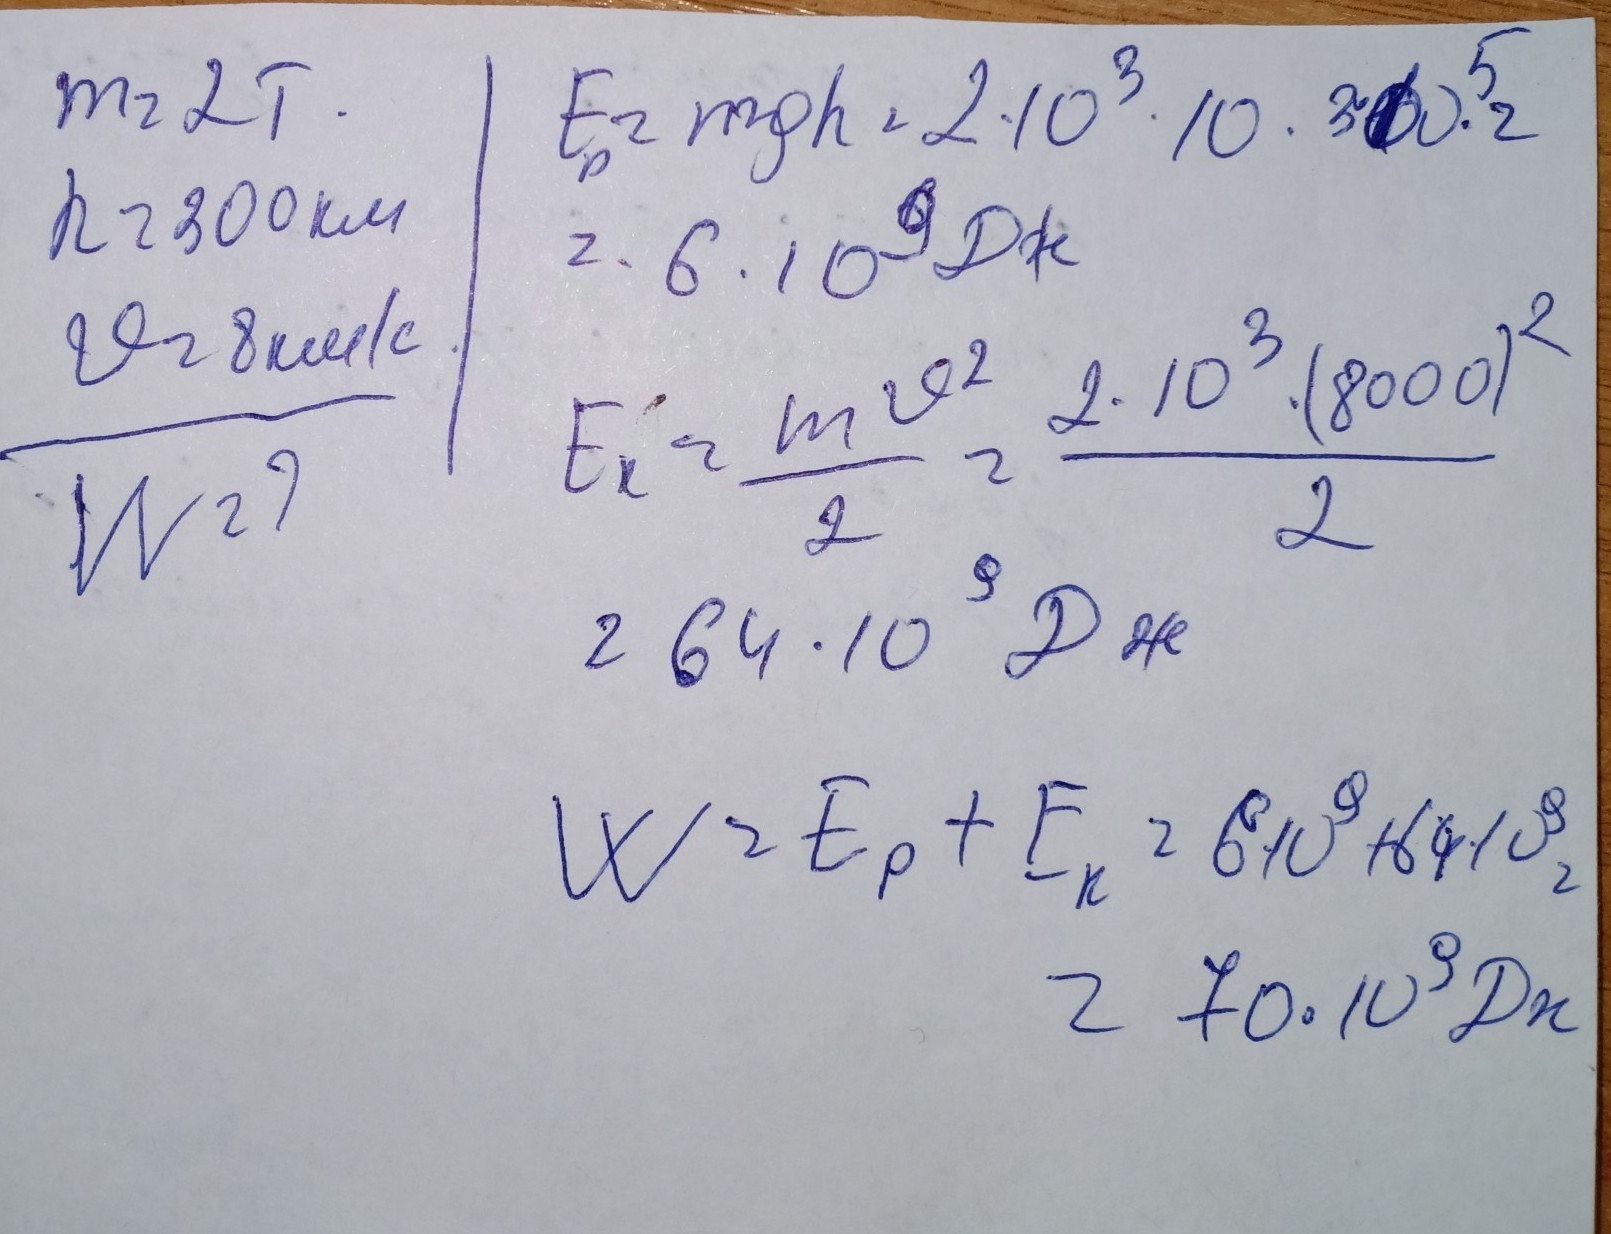 m = 2т.
h = 300км
υ = 8км/с.
W = ?
Eₚ = mgh = 2·10³·10·3·10⁵ =
= 6·10⁹ Дж
Eₖ = mυ²/2 = 2·10³·(8000)²/2
= 64·10⁹ Дж
W = Eₚ + Eₖ = 6·10⁹ + 64·10⁹ =
= 70·10⁹ Дж